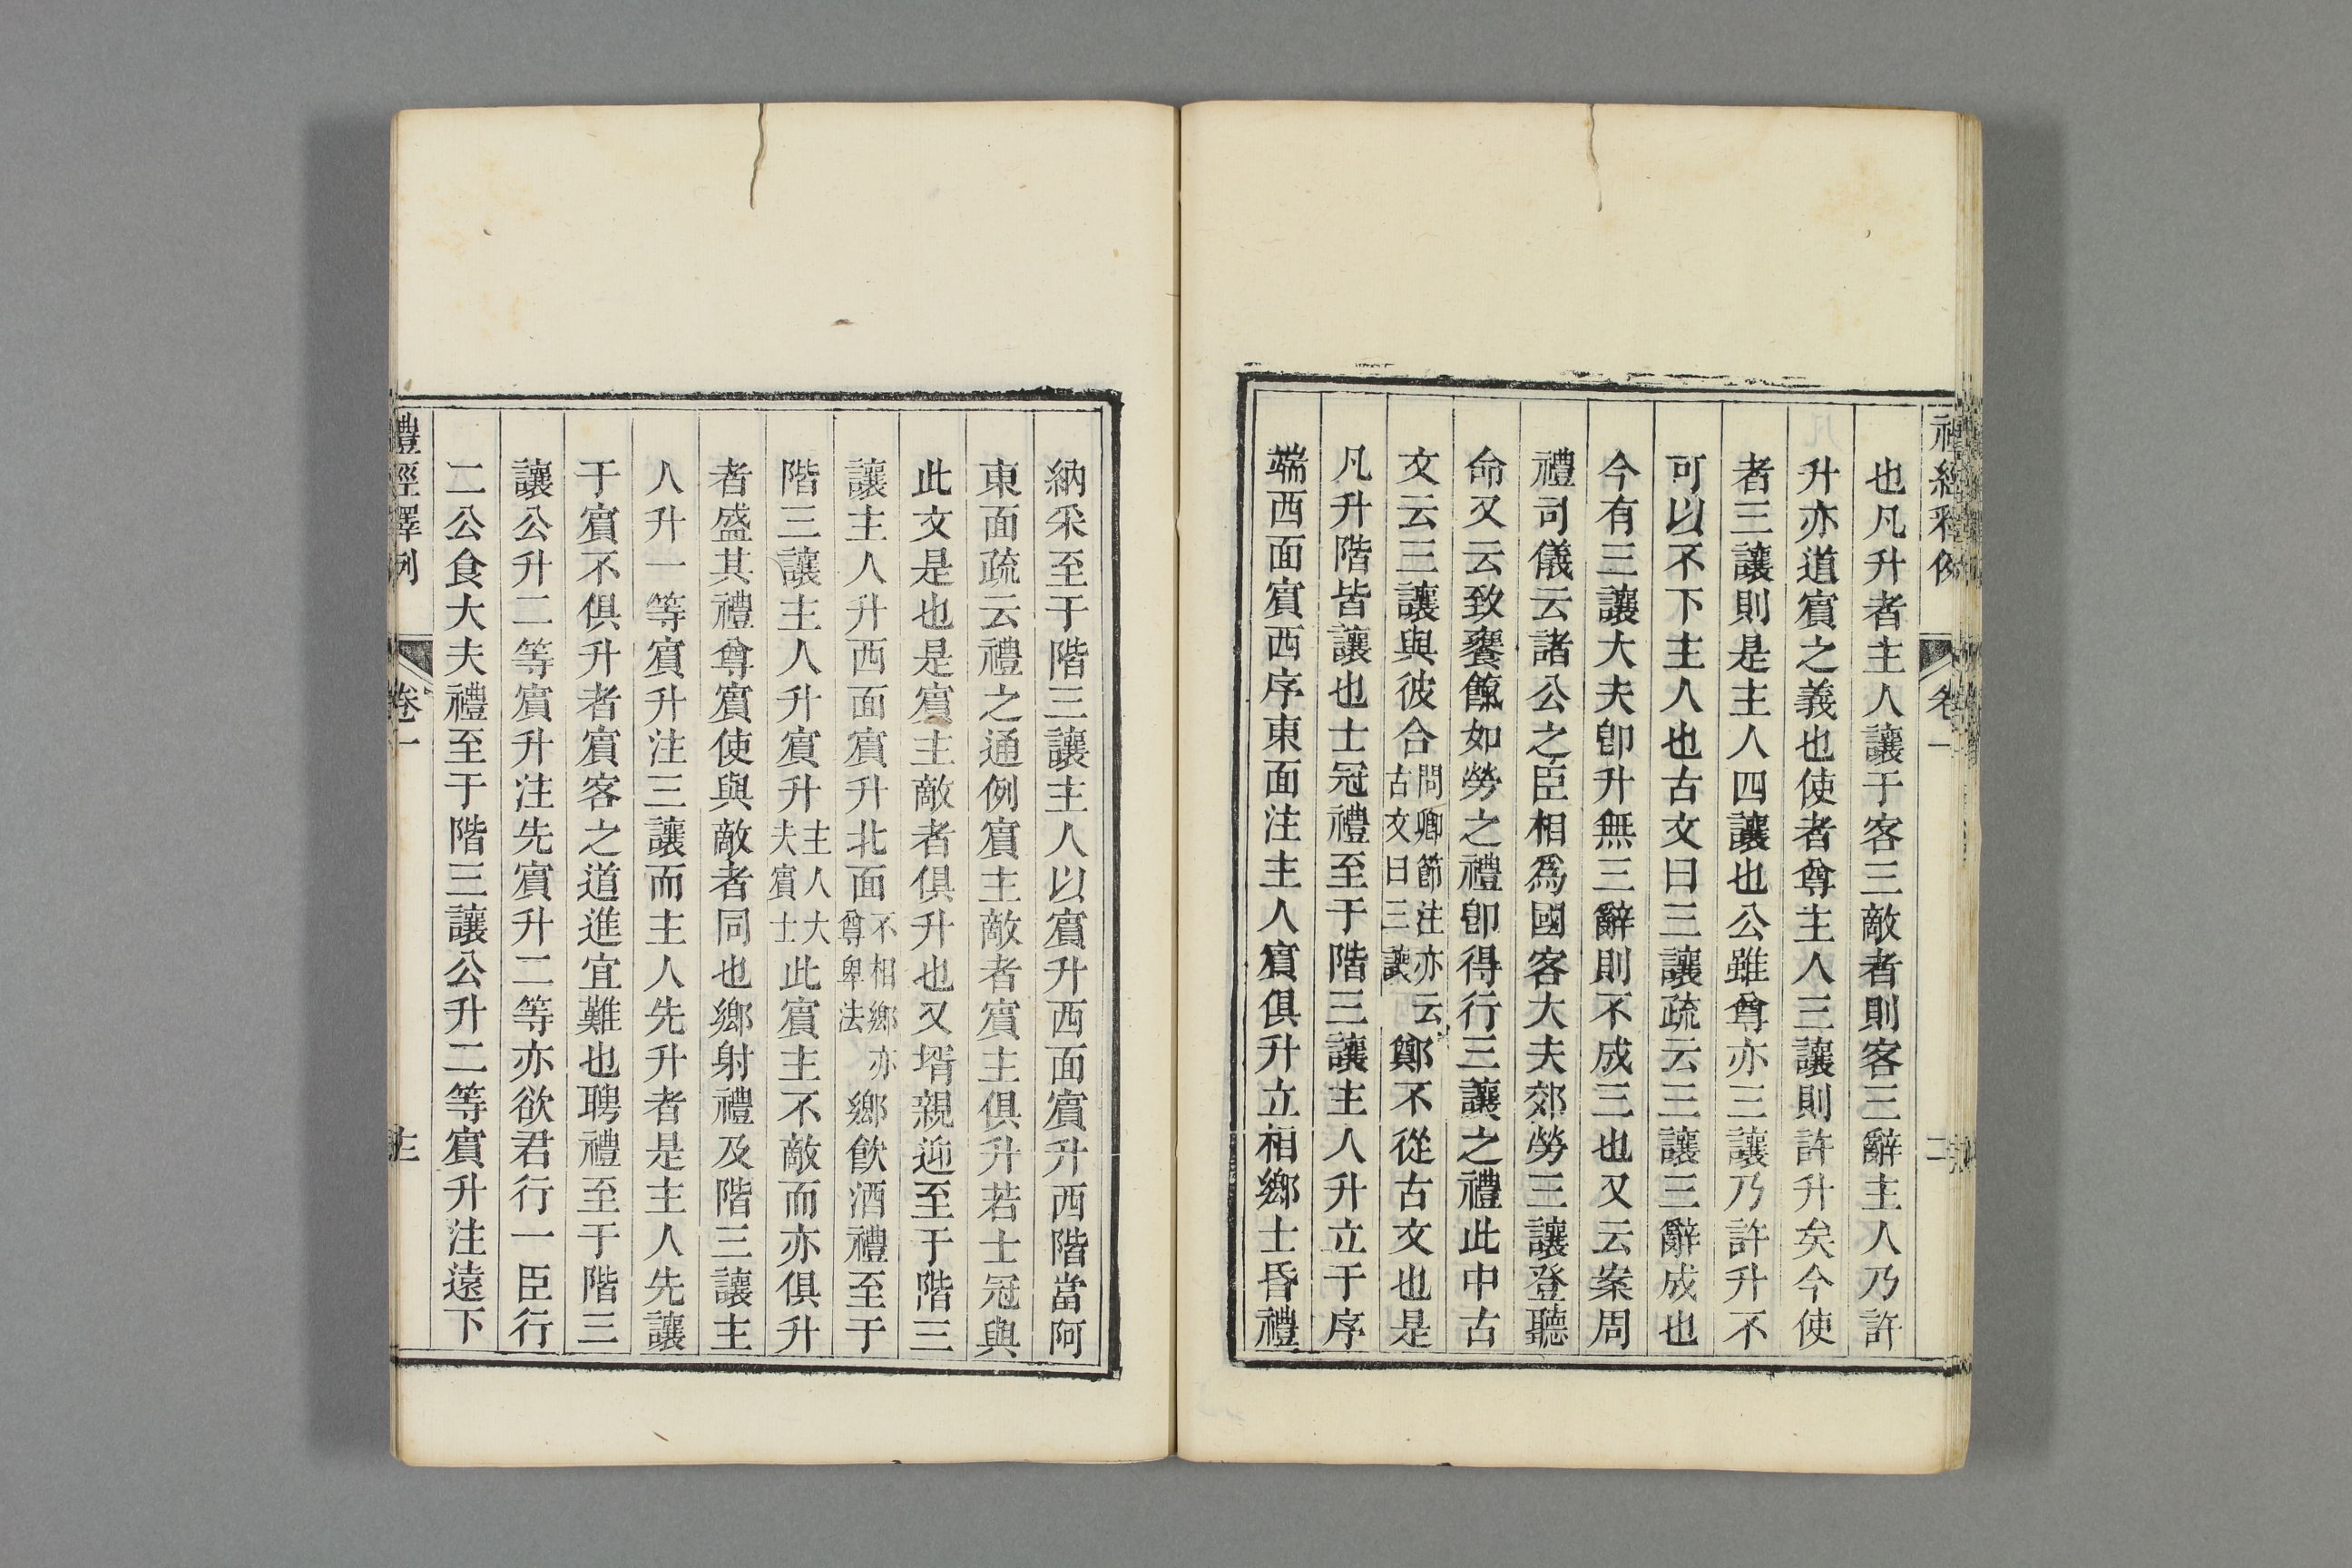 禮經釋例 卷一
也凡升者主人讓于客三敵者則客三辭主人乃許
升亦道賓之義也使者尊主人三讓則許升矣今使
者三讓則是主人四讓也公雖尊亦三讓乃許升不
可以不下主人也古文曰三讓疏云三讓三辭成也
今有三讓大夫卽升無三辭則不成三也又云案周
禮司儀云諸公之臣相爲國客大夫郊勞三讓登聽
命又云致饔餼如勞之禮卽得行三讓之禮此中古
文云三讓與彼合問卿節注亦云古文曰三讓鄭不從古文也是
凡升階皆讓也士冠禮至于階三讓主人升立于序
端西面賓西序東面注主人賓俱升立相鄉士昏禮
納采至于階三讓主人以賓升西面賓升西階當阿
東面疏云禮之通例賓主敵者賓主俱升若士冠與
此文是也是賓主敵者俱升也又壻親迎至于階三
讓主人升西面賓升北面不相鄉亦尊卑法鄉飮酒禮至于
階三讓主人升賓升主人大夫賓士此賓主不敵而亦俱升
者盛其禮尊賓使與敵者同也鄉射禮及階三讓主
人升一等賓升注三讓而主人先升者是主人先讓
于賓不俱升者賓客之道進宜難也聘禮至于階三
讓公升二等賓升注先賓升二等亦欲君行一臣行
二公食大夫禮至于階三讓公升二等賓升注遠下
禮經釋例 卷一